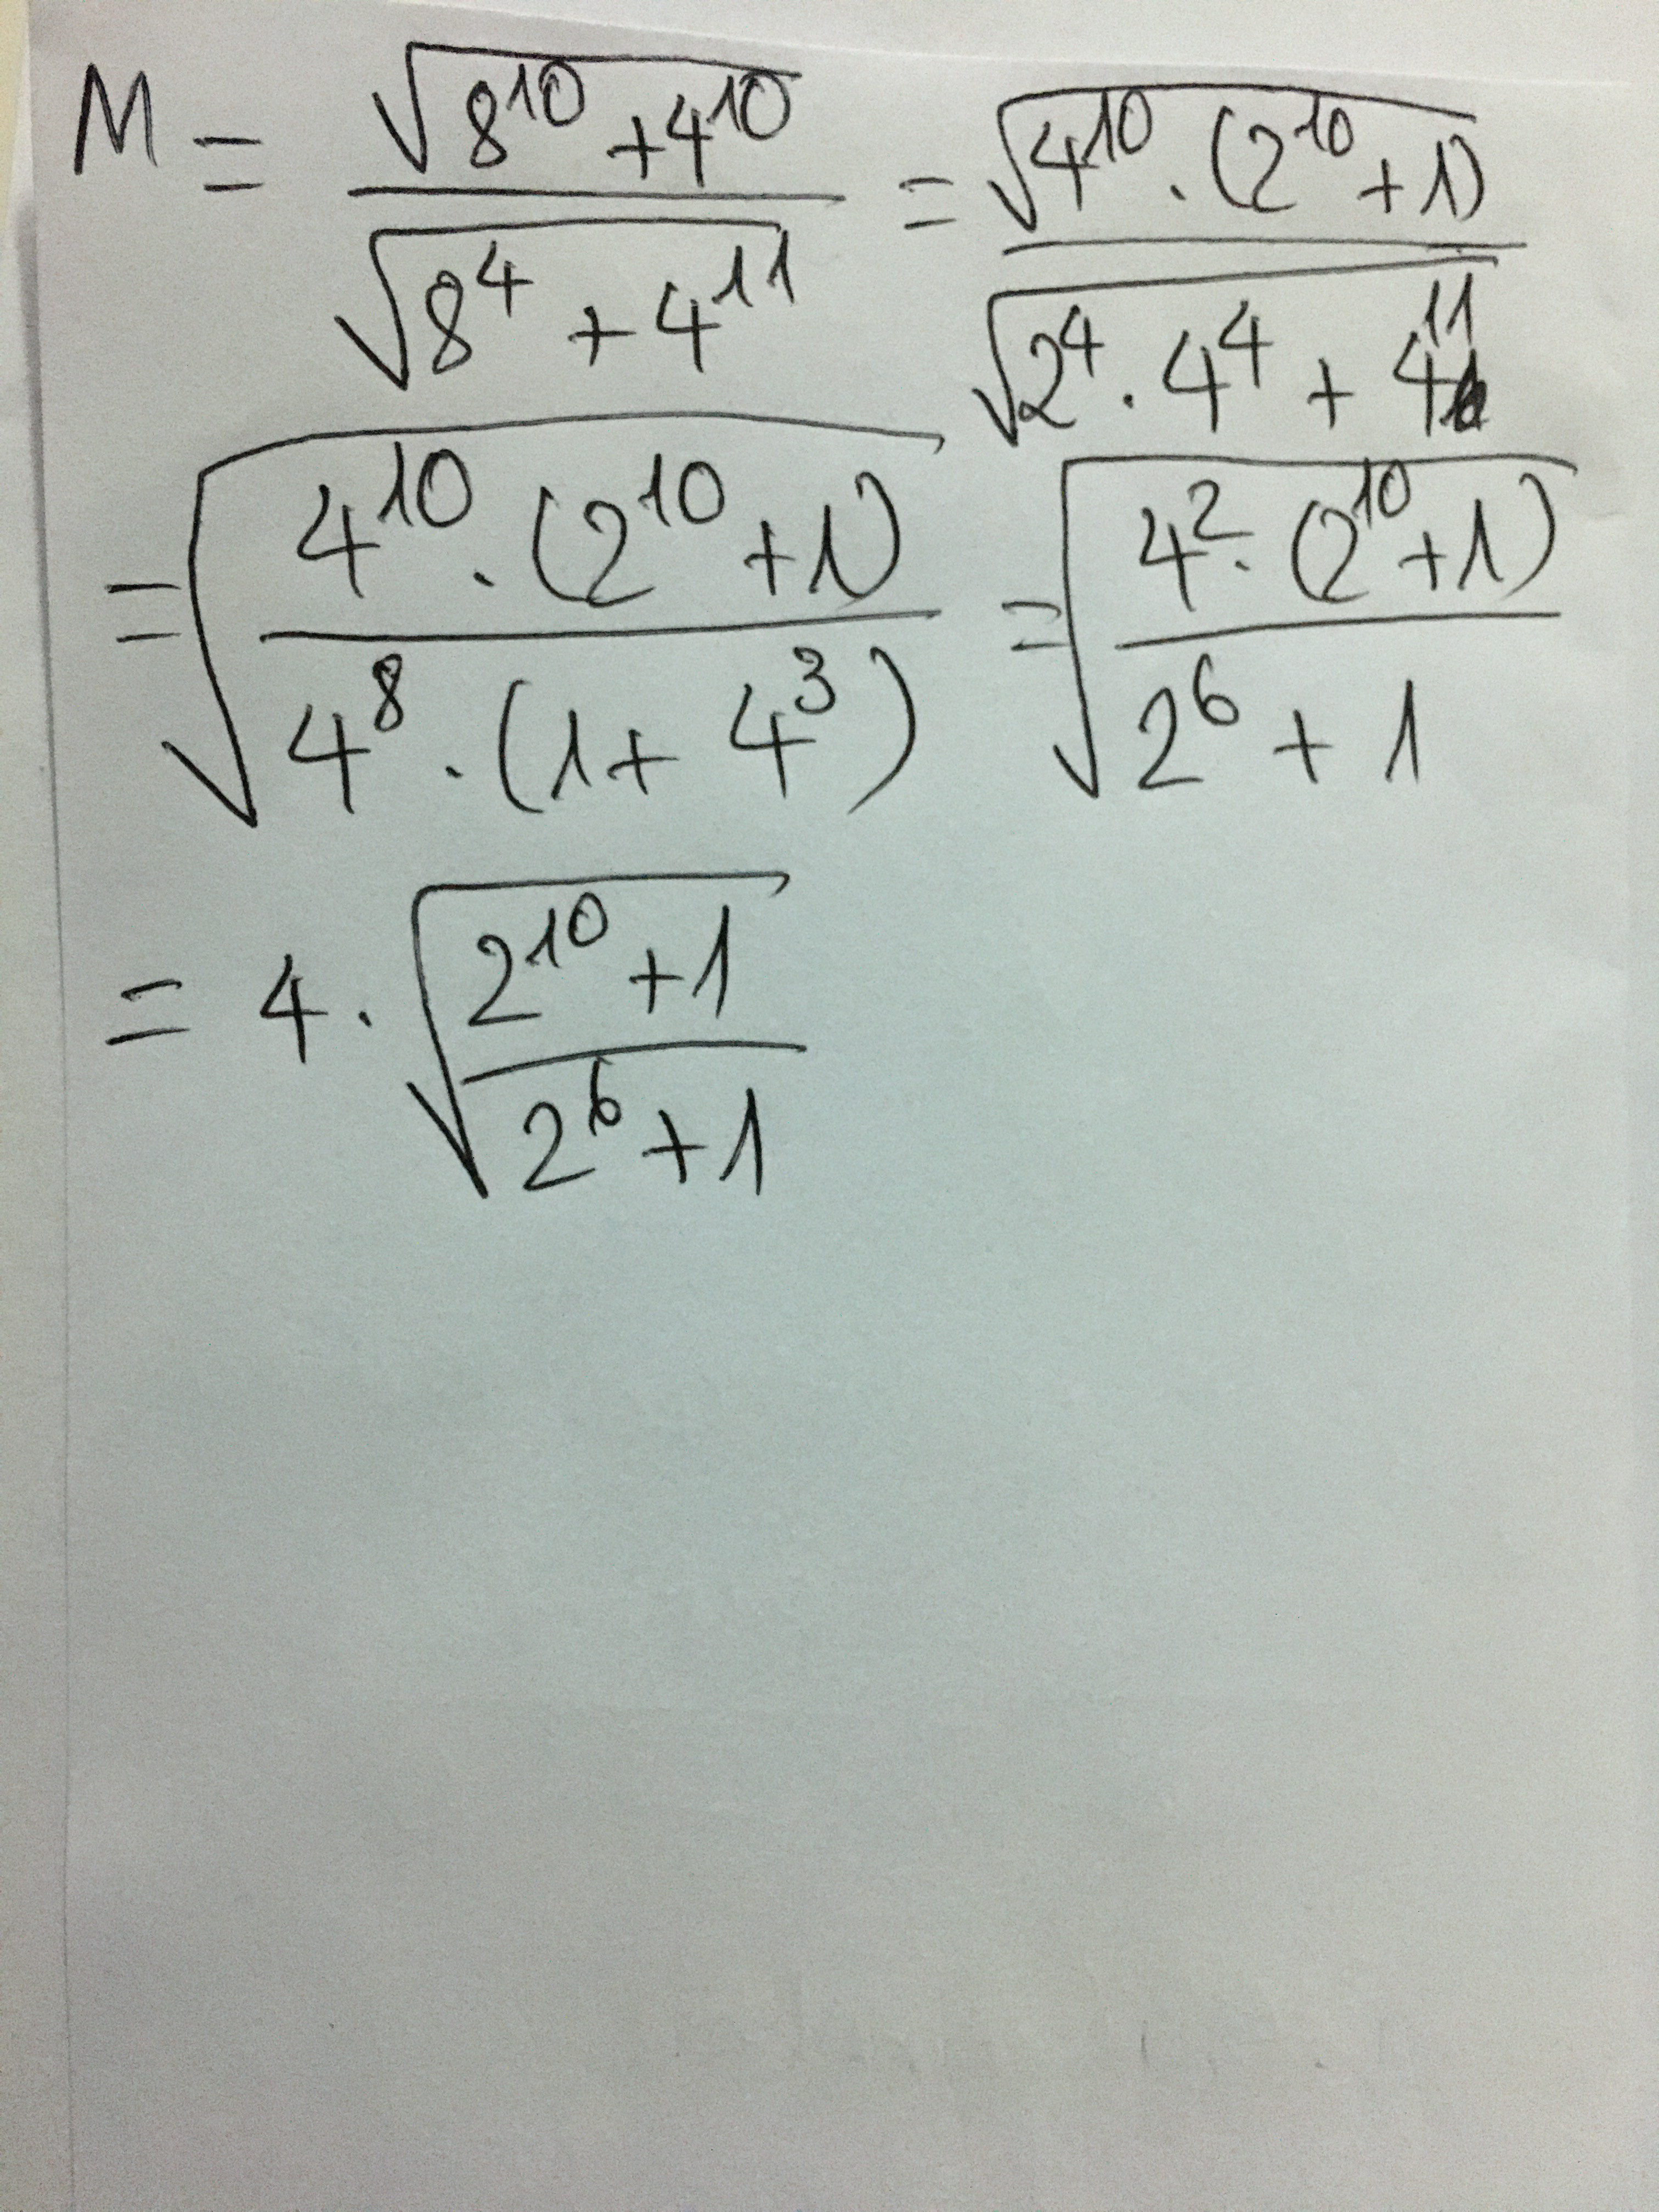 M = √(8^10 + 4^10) / √(8^4 + 4^11) = √(4^10 . (2^10 + 1)) / √(2^4 . 4^4 + 4^11)
= √((4^10 . (2^10 + 1)) / (4^8 . (1 + 4^3))) = √((4^2 . (2^10 + 1)) / (2^6 + 1))
= 4 . √((2^10 + 1) / (2^6 + 1))